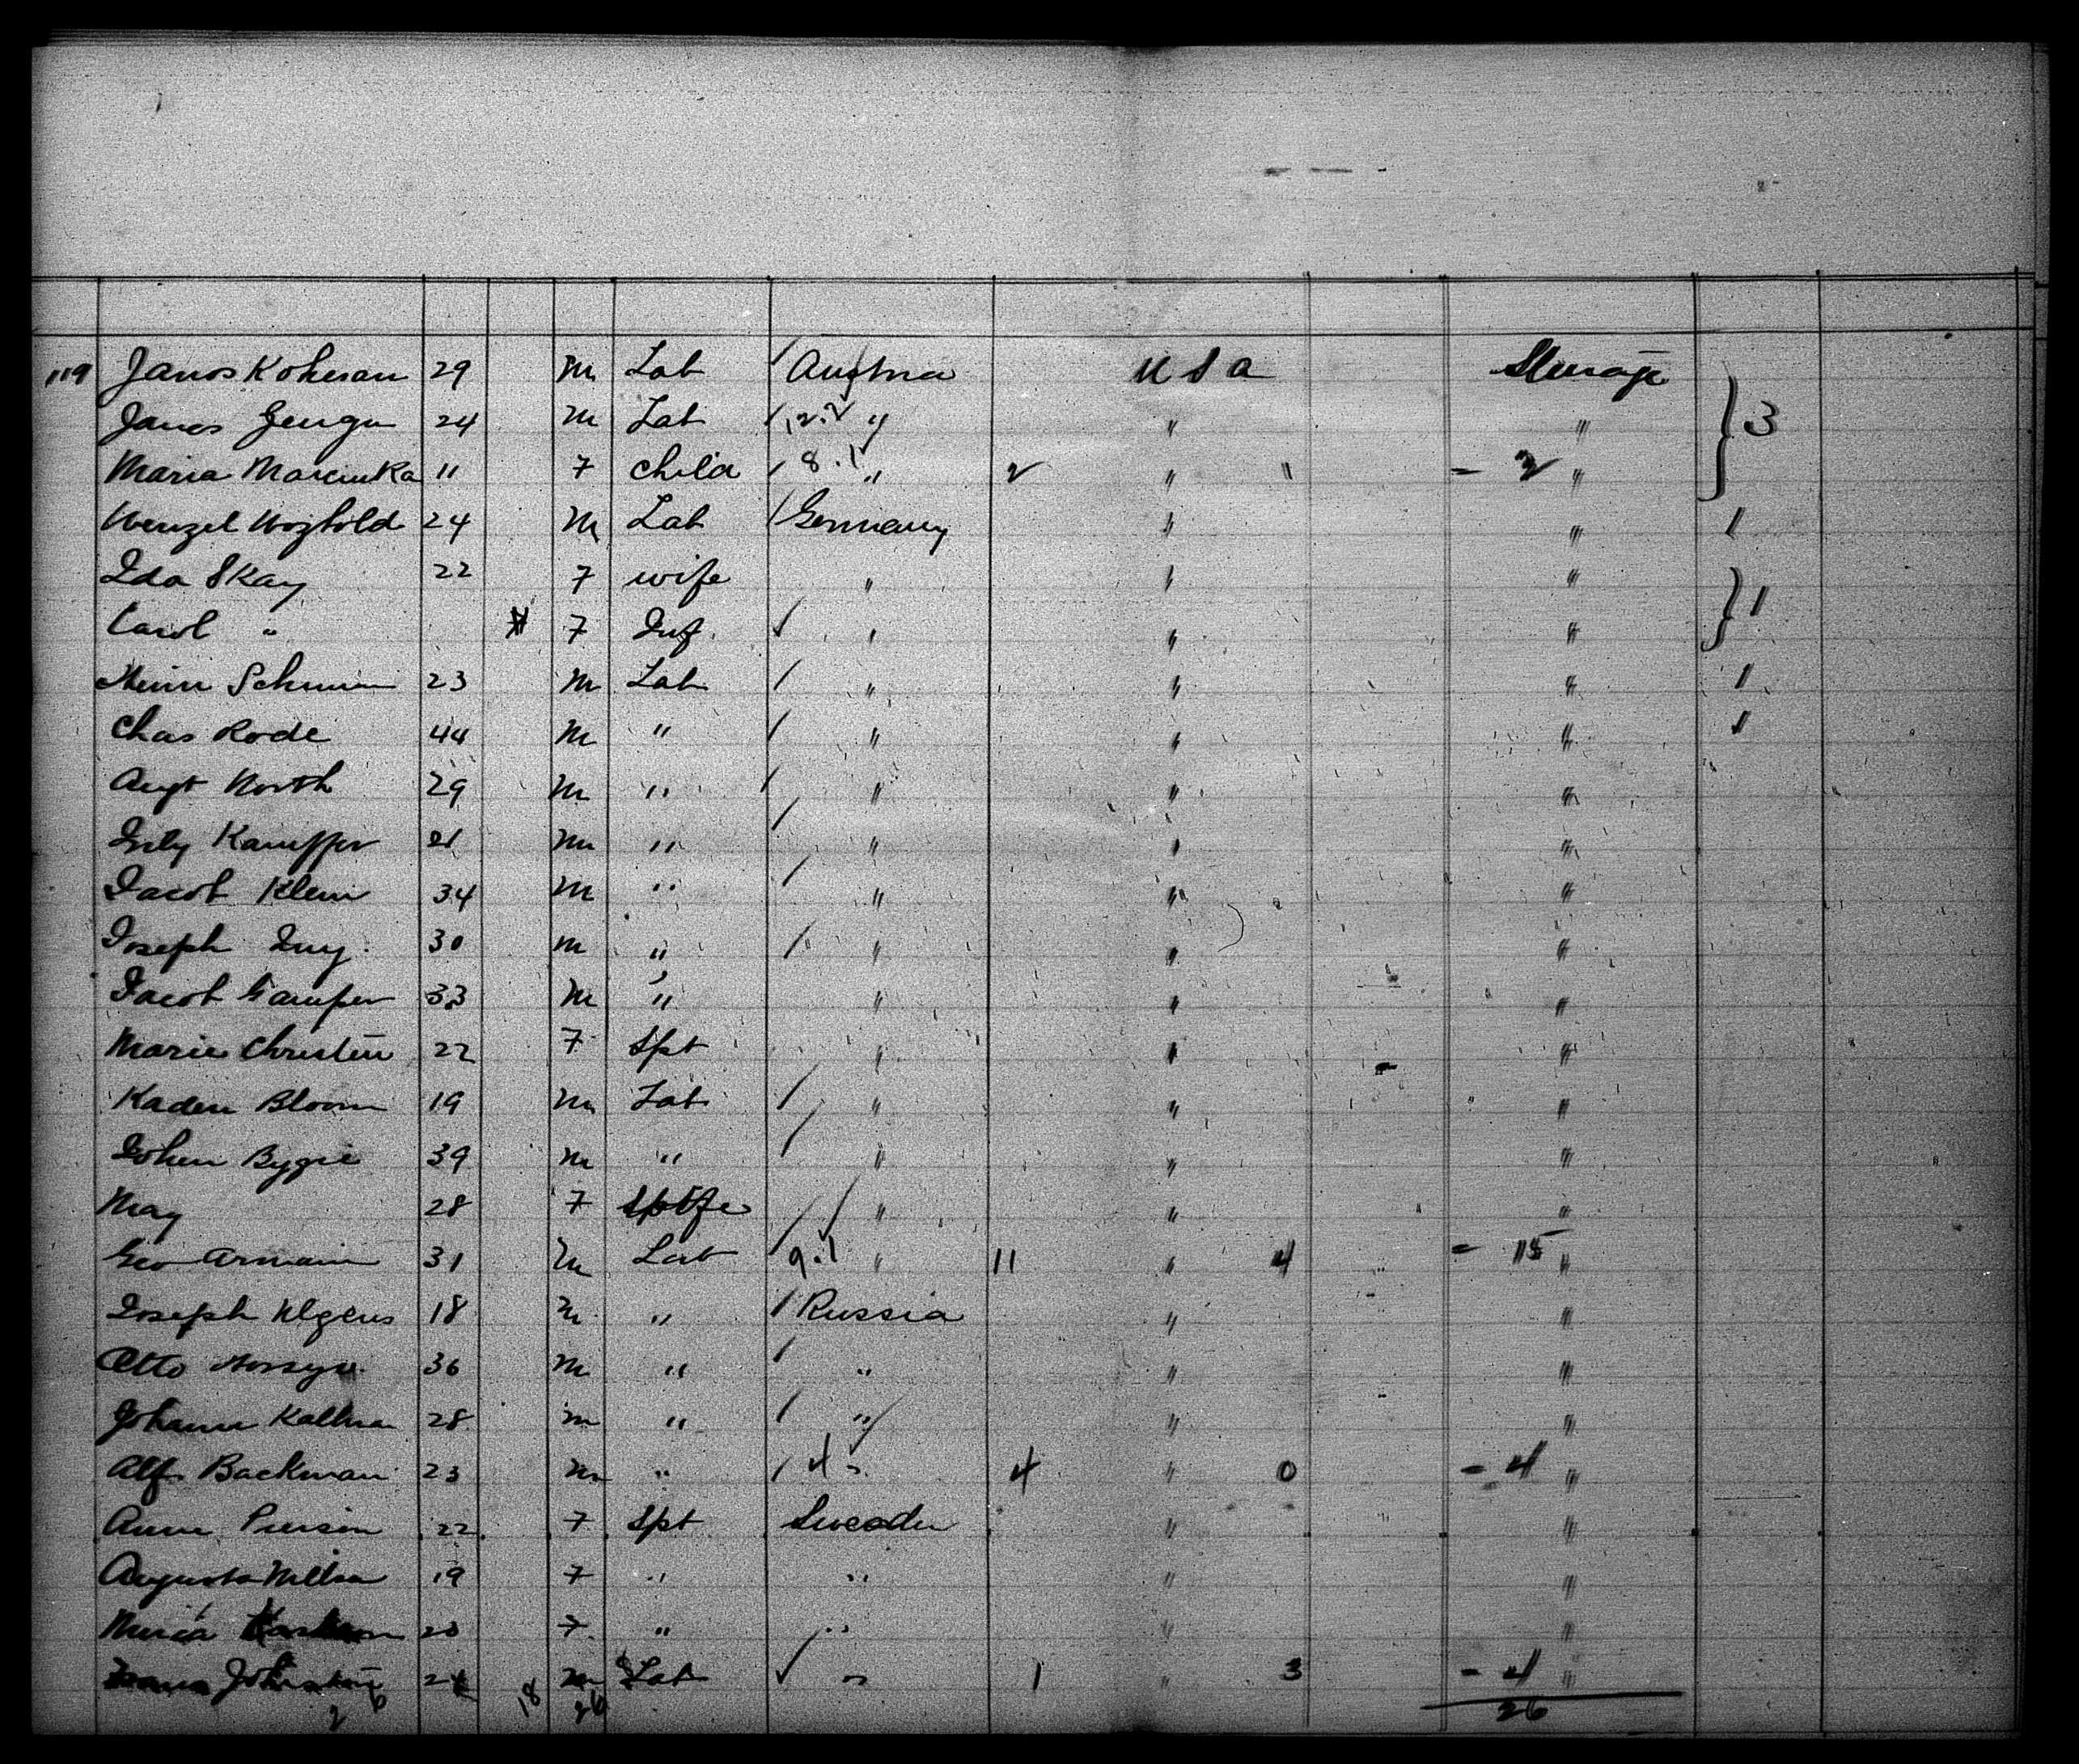 119 Janos Kohman 29 m Lab / Austria U S A Steerage
Janos 24 m Lab / 12.2 " " " } 3
Maria Marcinka 11 7 child / 8.1 " 2 " " = 2 "
Wenzel 24 m Lab / Germany " " 1
Ida Skay 22 7 wife " " "
Carol " 7 Inf. / " " " } 1
23 m Lab / " " " 1
Chas Rode 44 m " / " " " 1
Augt North 29 m " / " " "
21 m " / " " "
Jacob Klein 34 m " / " " "
Joseph 30 m " / " " "
Jacob 33 m " " " "
Marie Christen 22 7 Spt " " "
Kaden Bloom 19 m Lab / " " "
Johen Bygie 39 m " / " " "
May 28 7 / " " "
Geo Armain 31 m Lab 9.1 " 11 " 4 = 15 "
Joseph 18 m " / Russia " "
Otto 36 m " / " " "
Johann Kallman 28 m " / " " "
Alf Backman 23 m " / 4 " 4 " 0 - 4 "
Anna 22 7 Spt Sweden " "
Augusta 19 7 " " " "
Maria 20 7 " " " "
2 m Lab / " 1 " 3 - 4 "
2 6 18 26 26